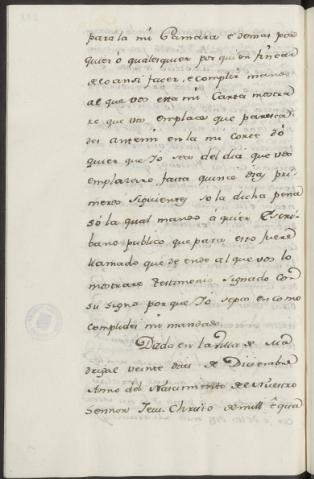 para la mi Camara e demas por
quier o qualesquier por quien fincar
de lo ansi facer, e complir mando
al que vos esta mi Carta mostra-
re que vos emplace que parezca-
des ante mi en la mi corte dó
quier que Yo sea del dia que vos
emplazare fasta quince dias pri-
meros siguientes so la dicha pena
só la qual mando á quier Escri-
bano publico que para esto fuere
llamado que de ende al que vos lo
mostrare testimonio signado con
su signo por que Yo sepa en como
complides mi mandado.
Dada en la Villa de Ma-
drigal veinte dias de Diciembre
Anno del Nacimiento de Nuestro
Sennor Jesu Christo de mill é qua